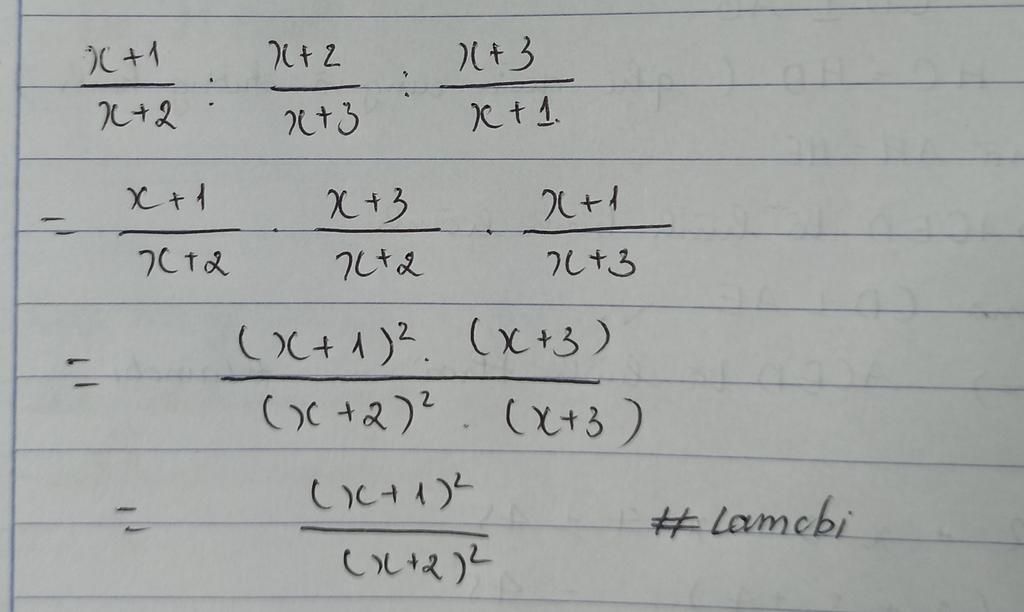 x+1/x+2 : x+2/x+3 : x+3/x+1.
= x+1/x+2 . x+3/x+2 . x+1/x+3
= (x+1)². (x+3)/(x+2)² . (x+3)
= (x+1)²/(x+2)² # Lamcbi